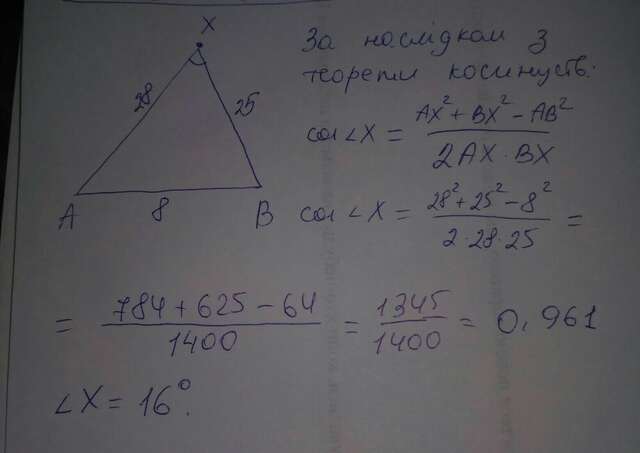 X
28
25
A
8
B
За наслідком з
теореми косинусів:
cos∠X = (AX² + BX² − AB²) / (2AX · BX)
cos∠X = (28² + 25² − 8²) / (2·28·25) =
= (784 + 625 − 64) / 1400 = 1345 / 1400 = 0,961
∠X = 16°.